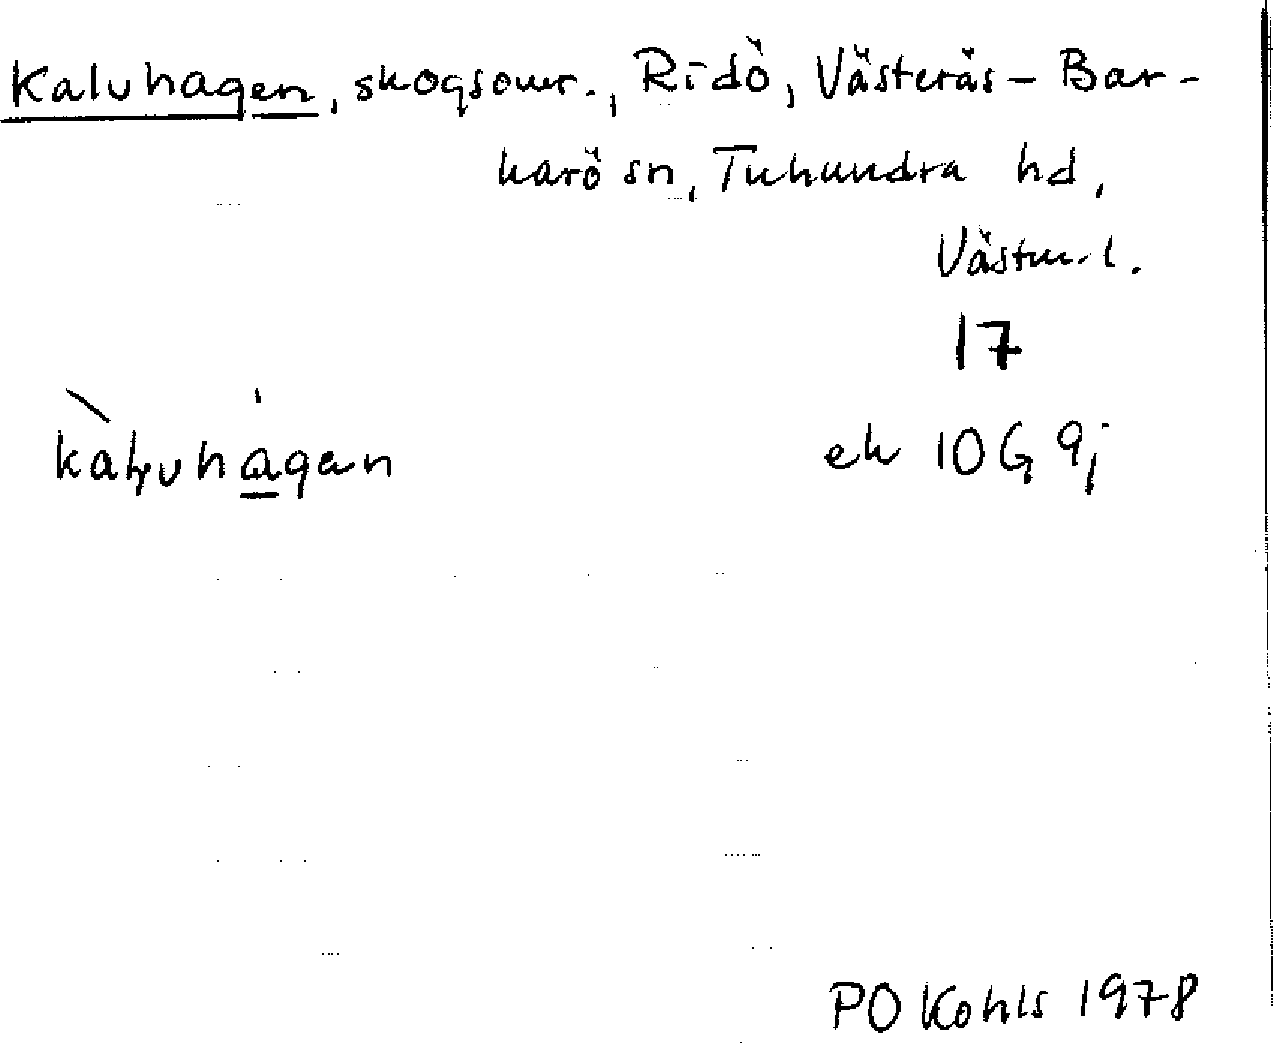 Kalvhagen, skogsomr., Ridö, Västerås-Bar-
karö sn, Tuhundra hd,
Västm. l.
17
kàḷvhágen
ek 10G 9j
PO Kohls 1978